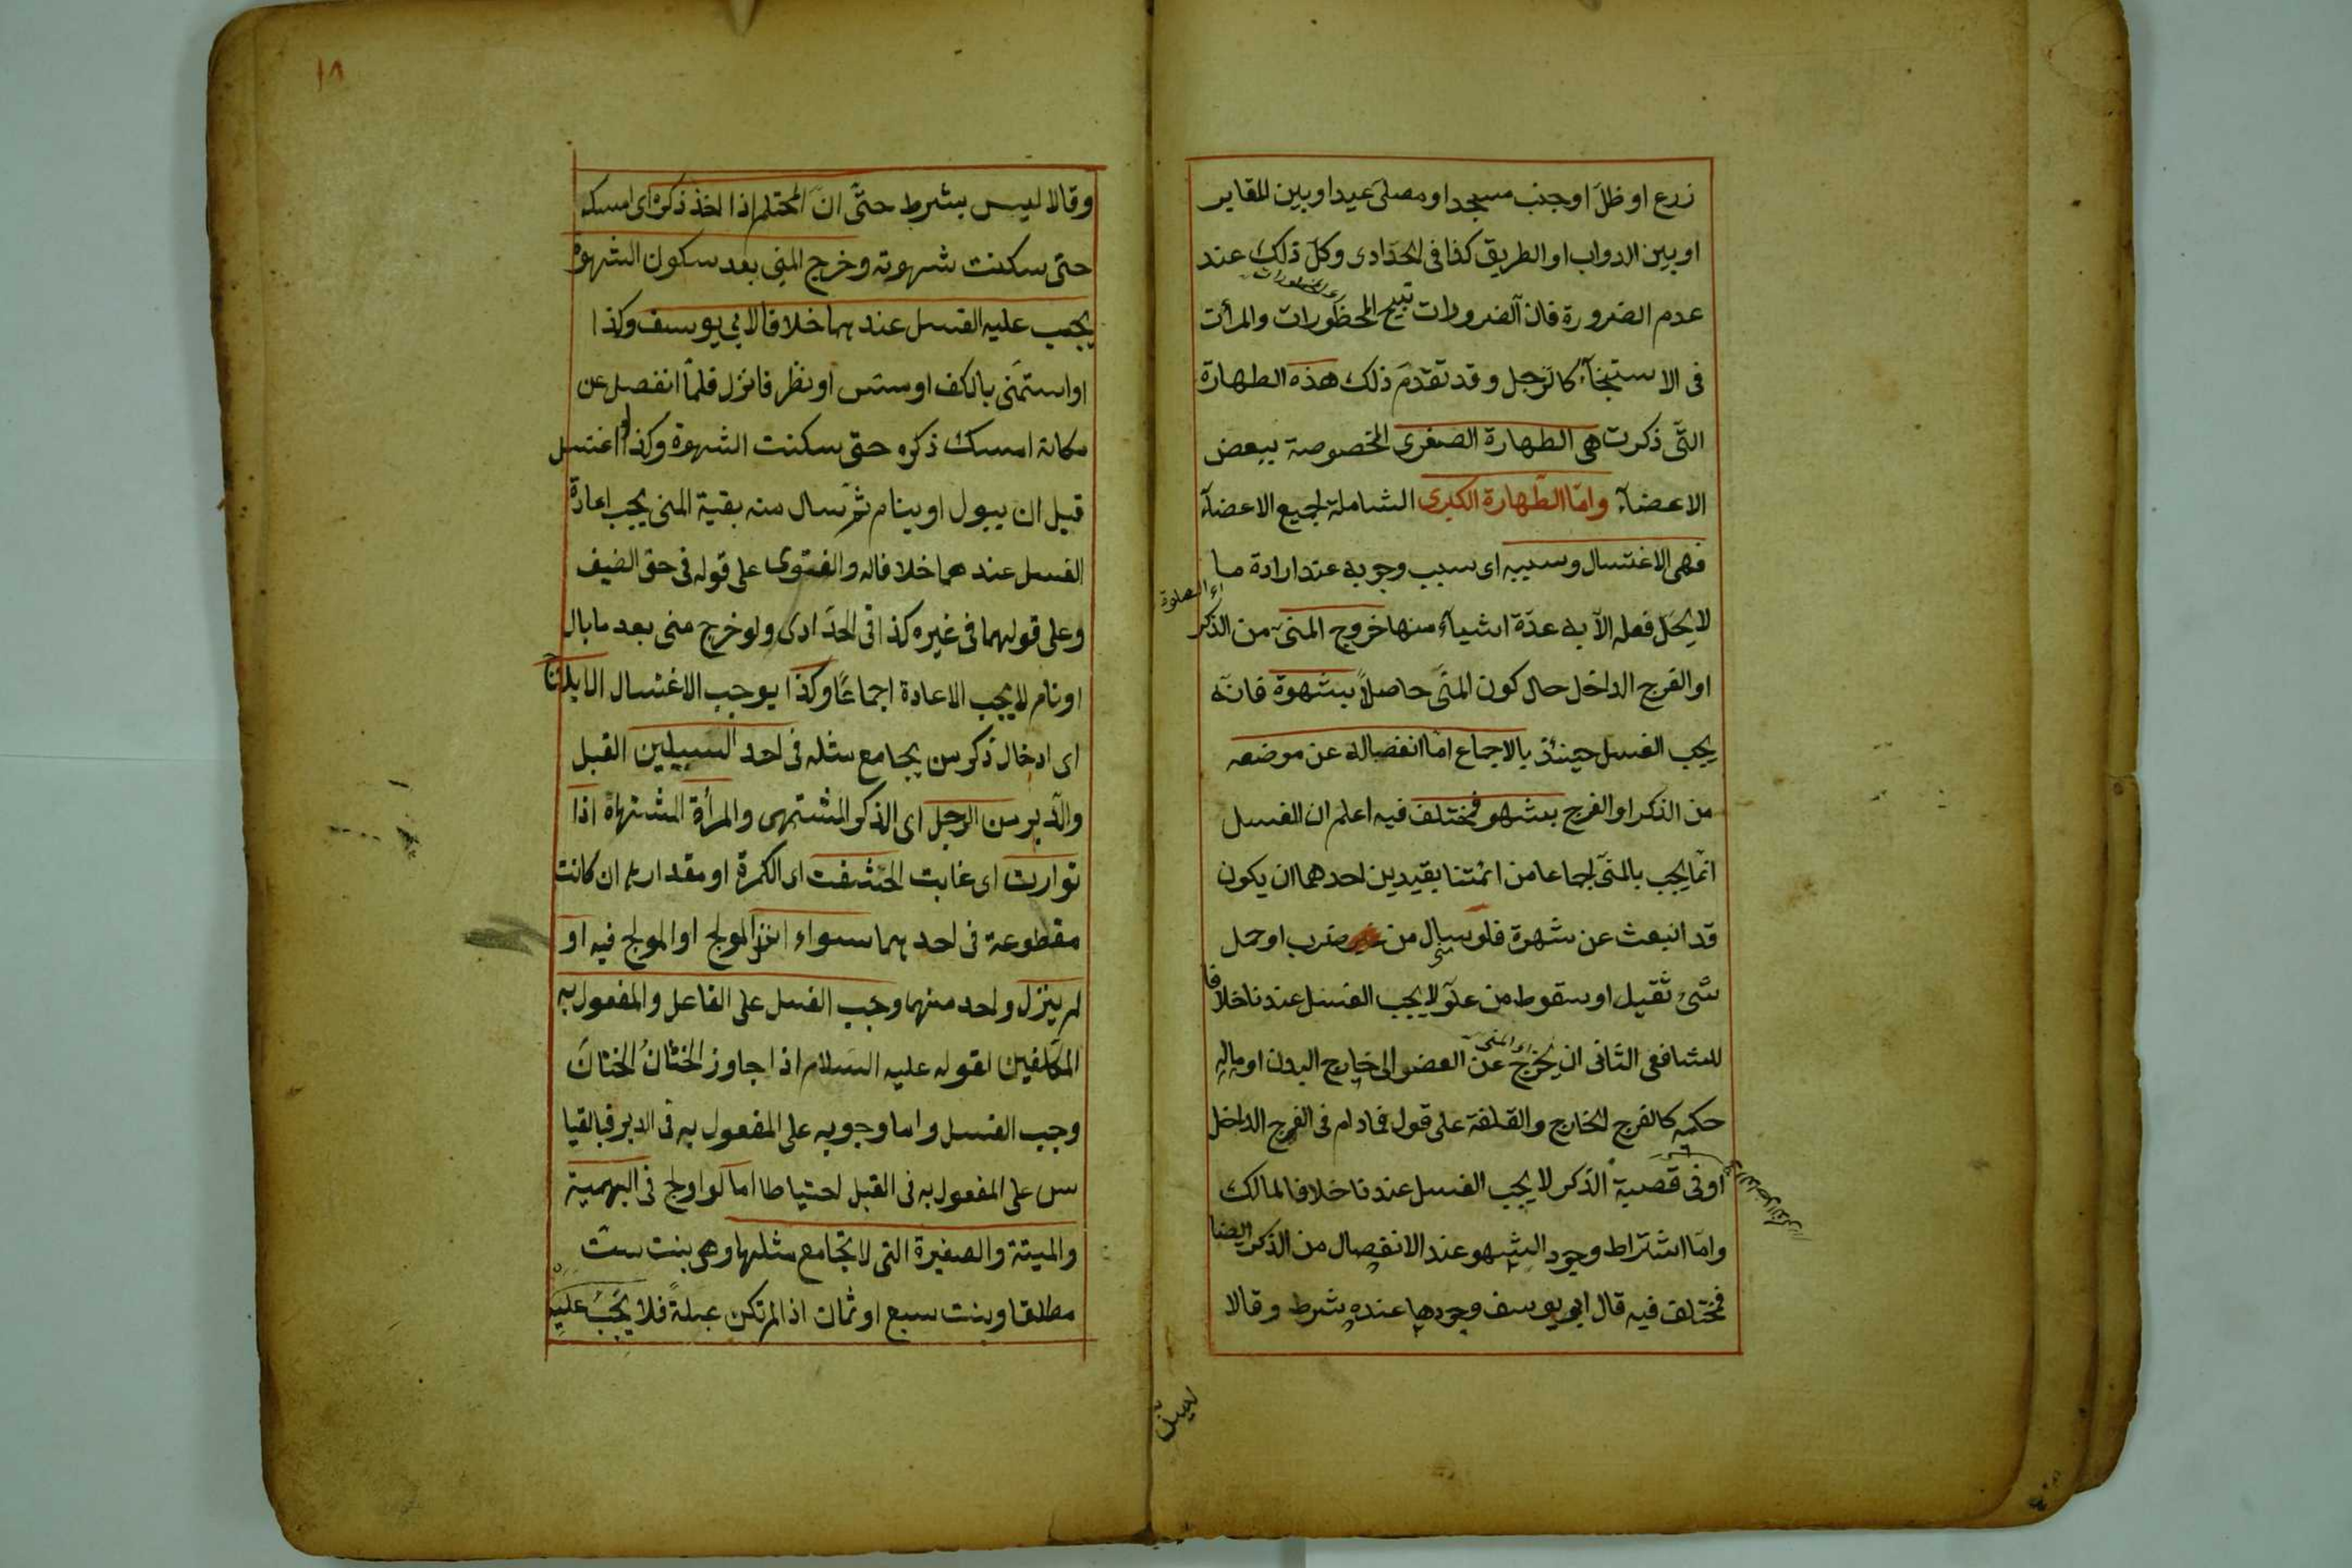 زرع او ظلّ او جنب مسجد او مصلى عيد او بين المقابر
او بين الدواب او الطريق كذا فى الحدادى وكل ذلك عند
عدم الضرورة فان الضرورات تبيح المحظورات والمرأت
فى الاستنجآء كالرّجل وقد تقدّم ذلك هذه الطهارة
التى ذكرت هى الطهارة الصغرى المخصوصة ببعض
الاعضآء وامّا الطّهارة الكبرى الشاملة لجميع الاعضآء
فهى الاغتسال وسببه اى سبب وجوبه عند ارادة ما
اى الصلوة
لا يحلّ فعله الّا به عدّة اشيآء منها خروج المنىّ من الذكر
او الفرج الداخل حال كون المنىّ حاصلاً بشهوة فانّه
يجب الغسل حينئذ بالاجماع امّا انفصاله عن موضعه
من الذكر او الفرج بشهو فمختلف فيه اعلم ان الغسل
انّما يجب بالمنىّ اجماعا من ائمّتنا بقيدين احدهما ان يكون
قد انبعث عن شهوة فلو سال من ضرب او حمل
شئ ثقيل او سقوط من علوّ لا يجب الغسل عندنا خلافا
للشافعى الثانى ان يخرج عن العضو الى خارج البدن او ماله
اى المنى
حكمه كالفرج الخارج والقلفة على قول فمادام فى الفرج الداخل
او فى قصبة الذكر لا يجب الغسل عندنا خلافا لمالك
وامّا اشتراط وجود الشهو عند الانفصال من الذكر ايضا
فمختلف فيه قال ابو يوسف وجودها عنده شرط وقالا
ليس
وقالا ليس بشرط حتّى انّ المحتلم اذا اخذ ذكره اى امسكه
حتى سكنت شهوته وخرج المنى بعد سكون الشهوة
يجب عليه الغسل عندهما خلافا لابى يوسف وكذا
او استمنى بالكف او مسّ او نظر فانزل فلمّا انفصل عن
مكانه امسك ذكره حتى سكنت الشهوة وكذا لو اغتسل
قبل ان يبول او ينام ثمّ سال منه بقية المنى يجب اعادة
الغسل عندهما خلافا له والفتوى على قوله فى حق الضيف
وعلى قولهما فى غيره كذا فى الحدّادى ولو خرج منى بعد ما بال
او نام لا يجب الاعادة اجماعًا وكذا يوجب الاغتسال الايلاج
اى ادخال ذكر من يجامع مثله فى احد السبيلين القبل
والدّبر من الرجل اى الذكر المشتهى والمرأة المشتهاة اذا
توارت اى غابت الحشفت اى الكمرة او مقدارها ان كانت
مقطوعة فى احدهما سواء انزل المولج او المولج فيه او
لم ينزل واحد منهما وجب الغسل على الفاعل والمفعول به
المكلفين لقوله عليه السّلام اذا جاوز الختانُ الختانَ
وجب الغسل واما وجوبه على المفعول به فى الدبر فبالقيا
س على المفعول به فى القبل احتياطا اما لو اولج فى البهيمة
والميتة والصغيرة التى لا تجامع مثلها وهى بنت ست
مطلقا وبنت سبع او ثمان اذا لم تكن عبلةً فلا يَجبُ عليه
١٨